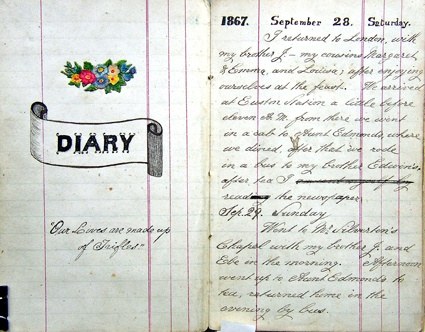 DIARY
"Our Lives are made up
of Trifles"
1867. September 28. Saturday.
I returned to London, with
my brother J - my cousins Margaret,
& Emma, and Louisa; after enjoying
ourselves at the feast. We arrived
at Euston Station a little before
eleven A.M. from there we went
in a cab to Aunt Edmonds where
we dined, after that we rode
in a bus to my brother Edwin's,
after tea I
reading the newspaper.
Sep. 29. Sunday
Went to Mr Silverton's
Chapel with my brother J. and
Ebe in the morning. Afternoon
went up to Aunt Edmonds to
tea, returned home in the
evening by bus.